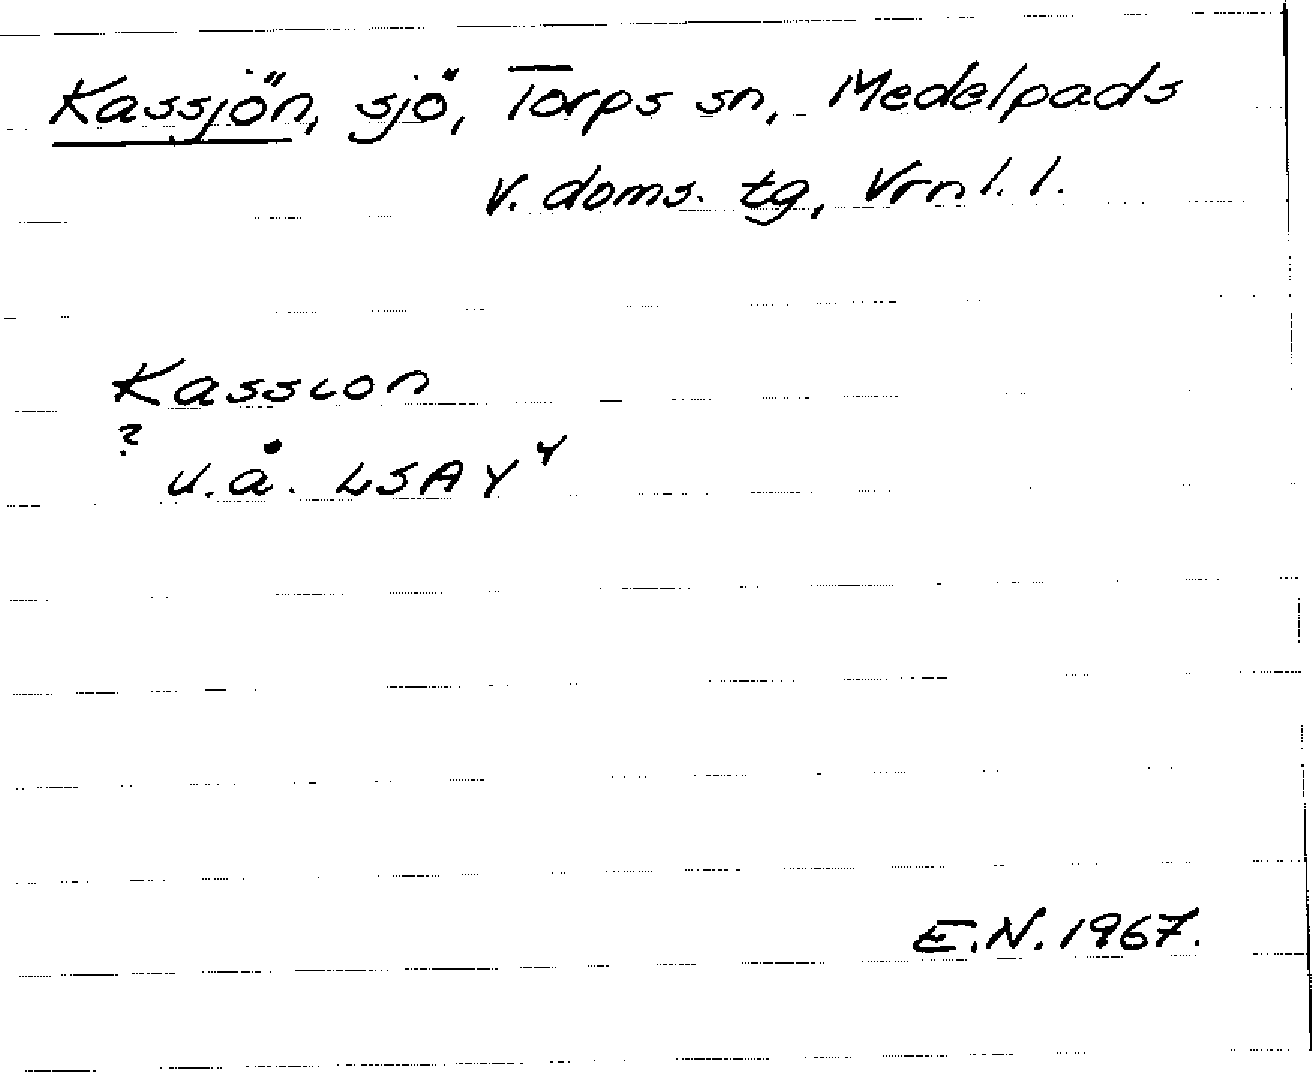 Kassjön, sjö, Torps sn, Medelpads
V. doms. tg, Vrnl. l.
Kasscon
?
u.å. LSA Y Y
E.N. 1967.